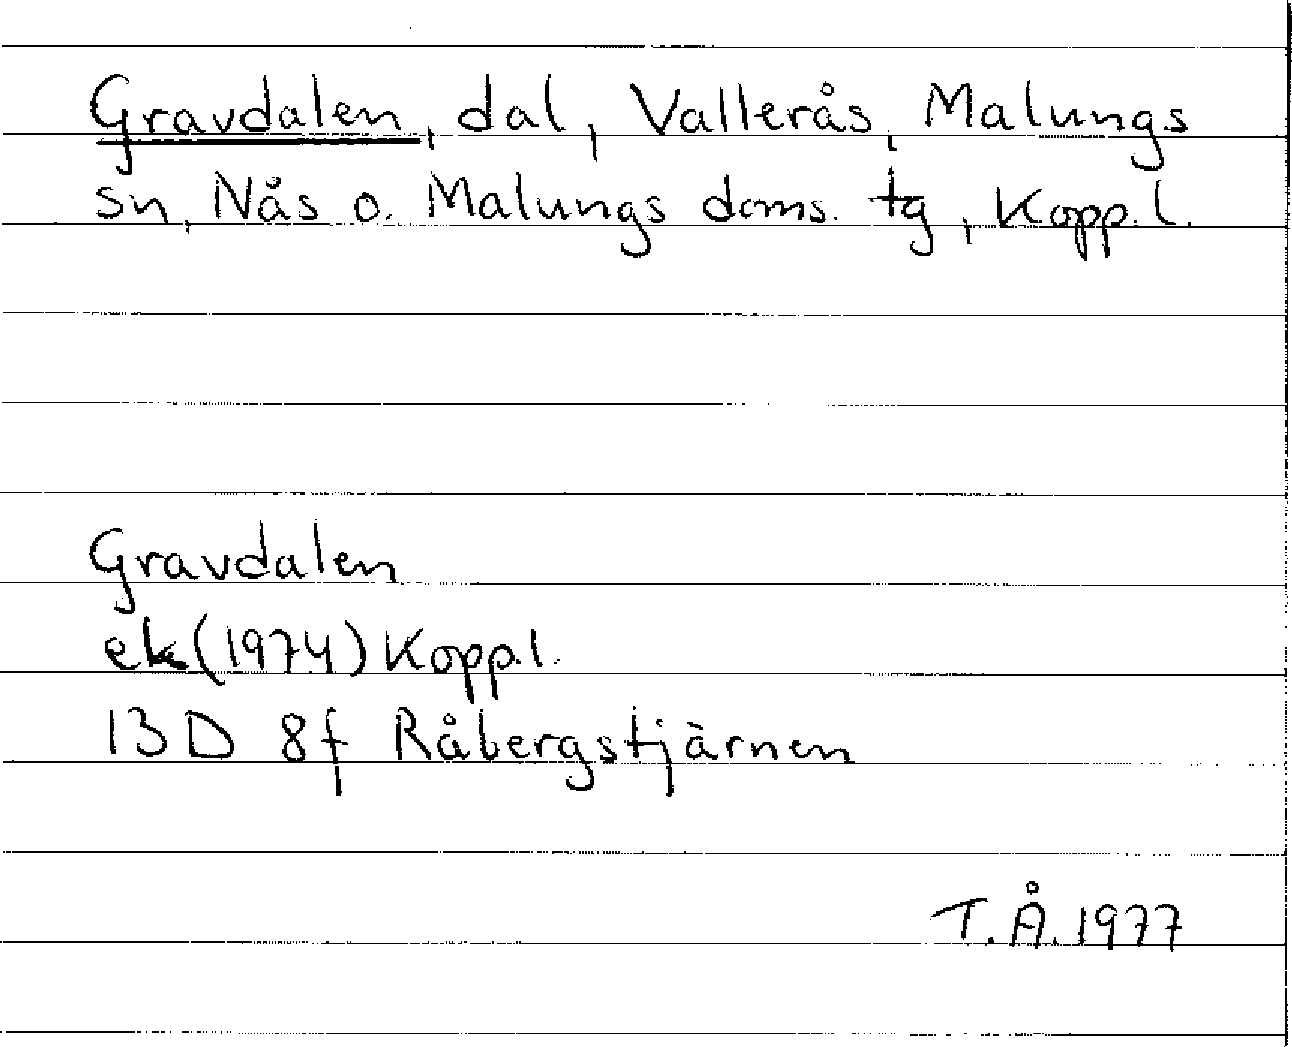 Gravdalen, dal, Vallerås, Malungs
sn, Nås o. Malungs doms. tg, Kopp.l.
Gravdalen
ek(1974)Kopp.l.
13D 8f Råbergstjärnen
T.Å.1977